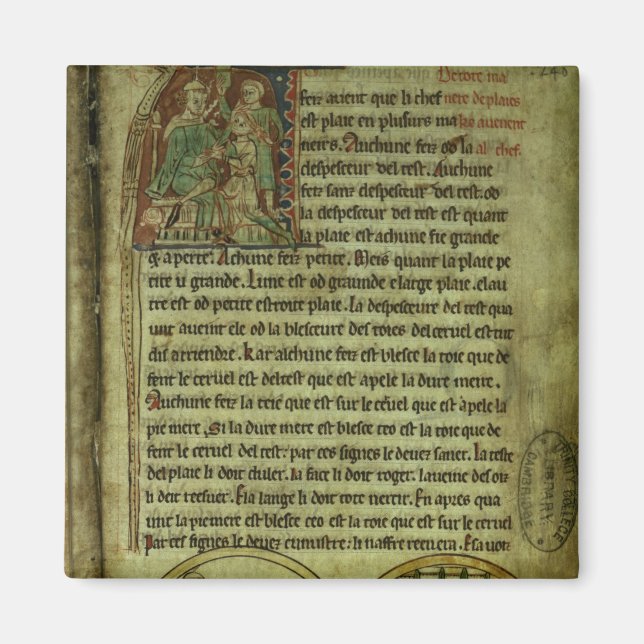 De tote ma
248
fetz avient que li chef
nere de plaies
est plaie en plusurs ma
ke avenent
neirs. Auchune fetz od la
al chef.
despesceur del test. Auchune
fetz sanz despesceur del test. od
la despesceur del test est quant
la plaie est achune fie grande
aperte. Achune feiz petite. Meis quant la plaie pe
tite u grande. Lune est od graunde e large plaie. e lau
tre est od petite estroite plaie. la despesceure del test qua
unt aveint ele od la blesceure des toies del cervel est tut
dis a friendre. kar alchune fetz est blesce la toie que de
fent le cervel del test que est apele la dure mere.
Auchune fetz la toie que est sur le cervel que est apele la
pie mere. Si la dure mere est blesce ceo est la toie que de
fent le cervel del test: par ces signes le devez saver. la teste
del plaie li doit chuler. la face li doit roger.
li deit E la lange li doit tote nercir. En apres qua
unt la pie mere est blesce ceo est la toie que est sur le cervel
Par ces signes le devez cunustre: li naffre E sa voiz
TRINITY COLLEGE
LIBRARY
CAMBRIDGE